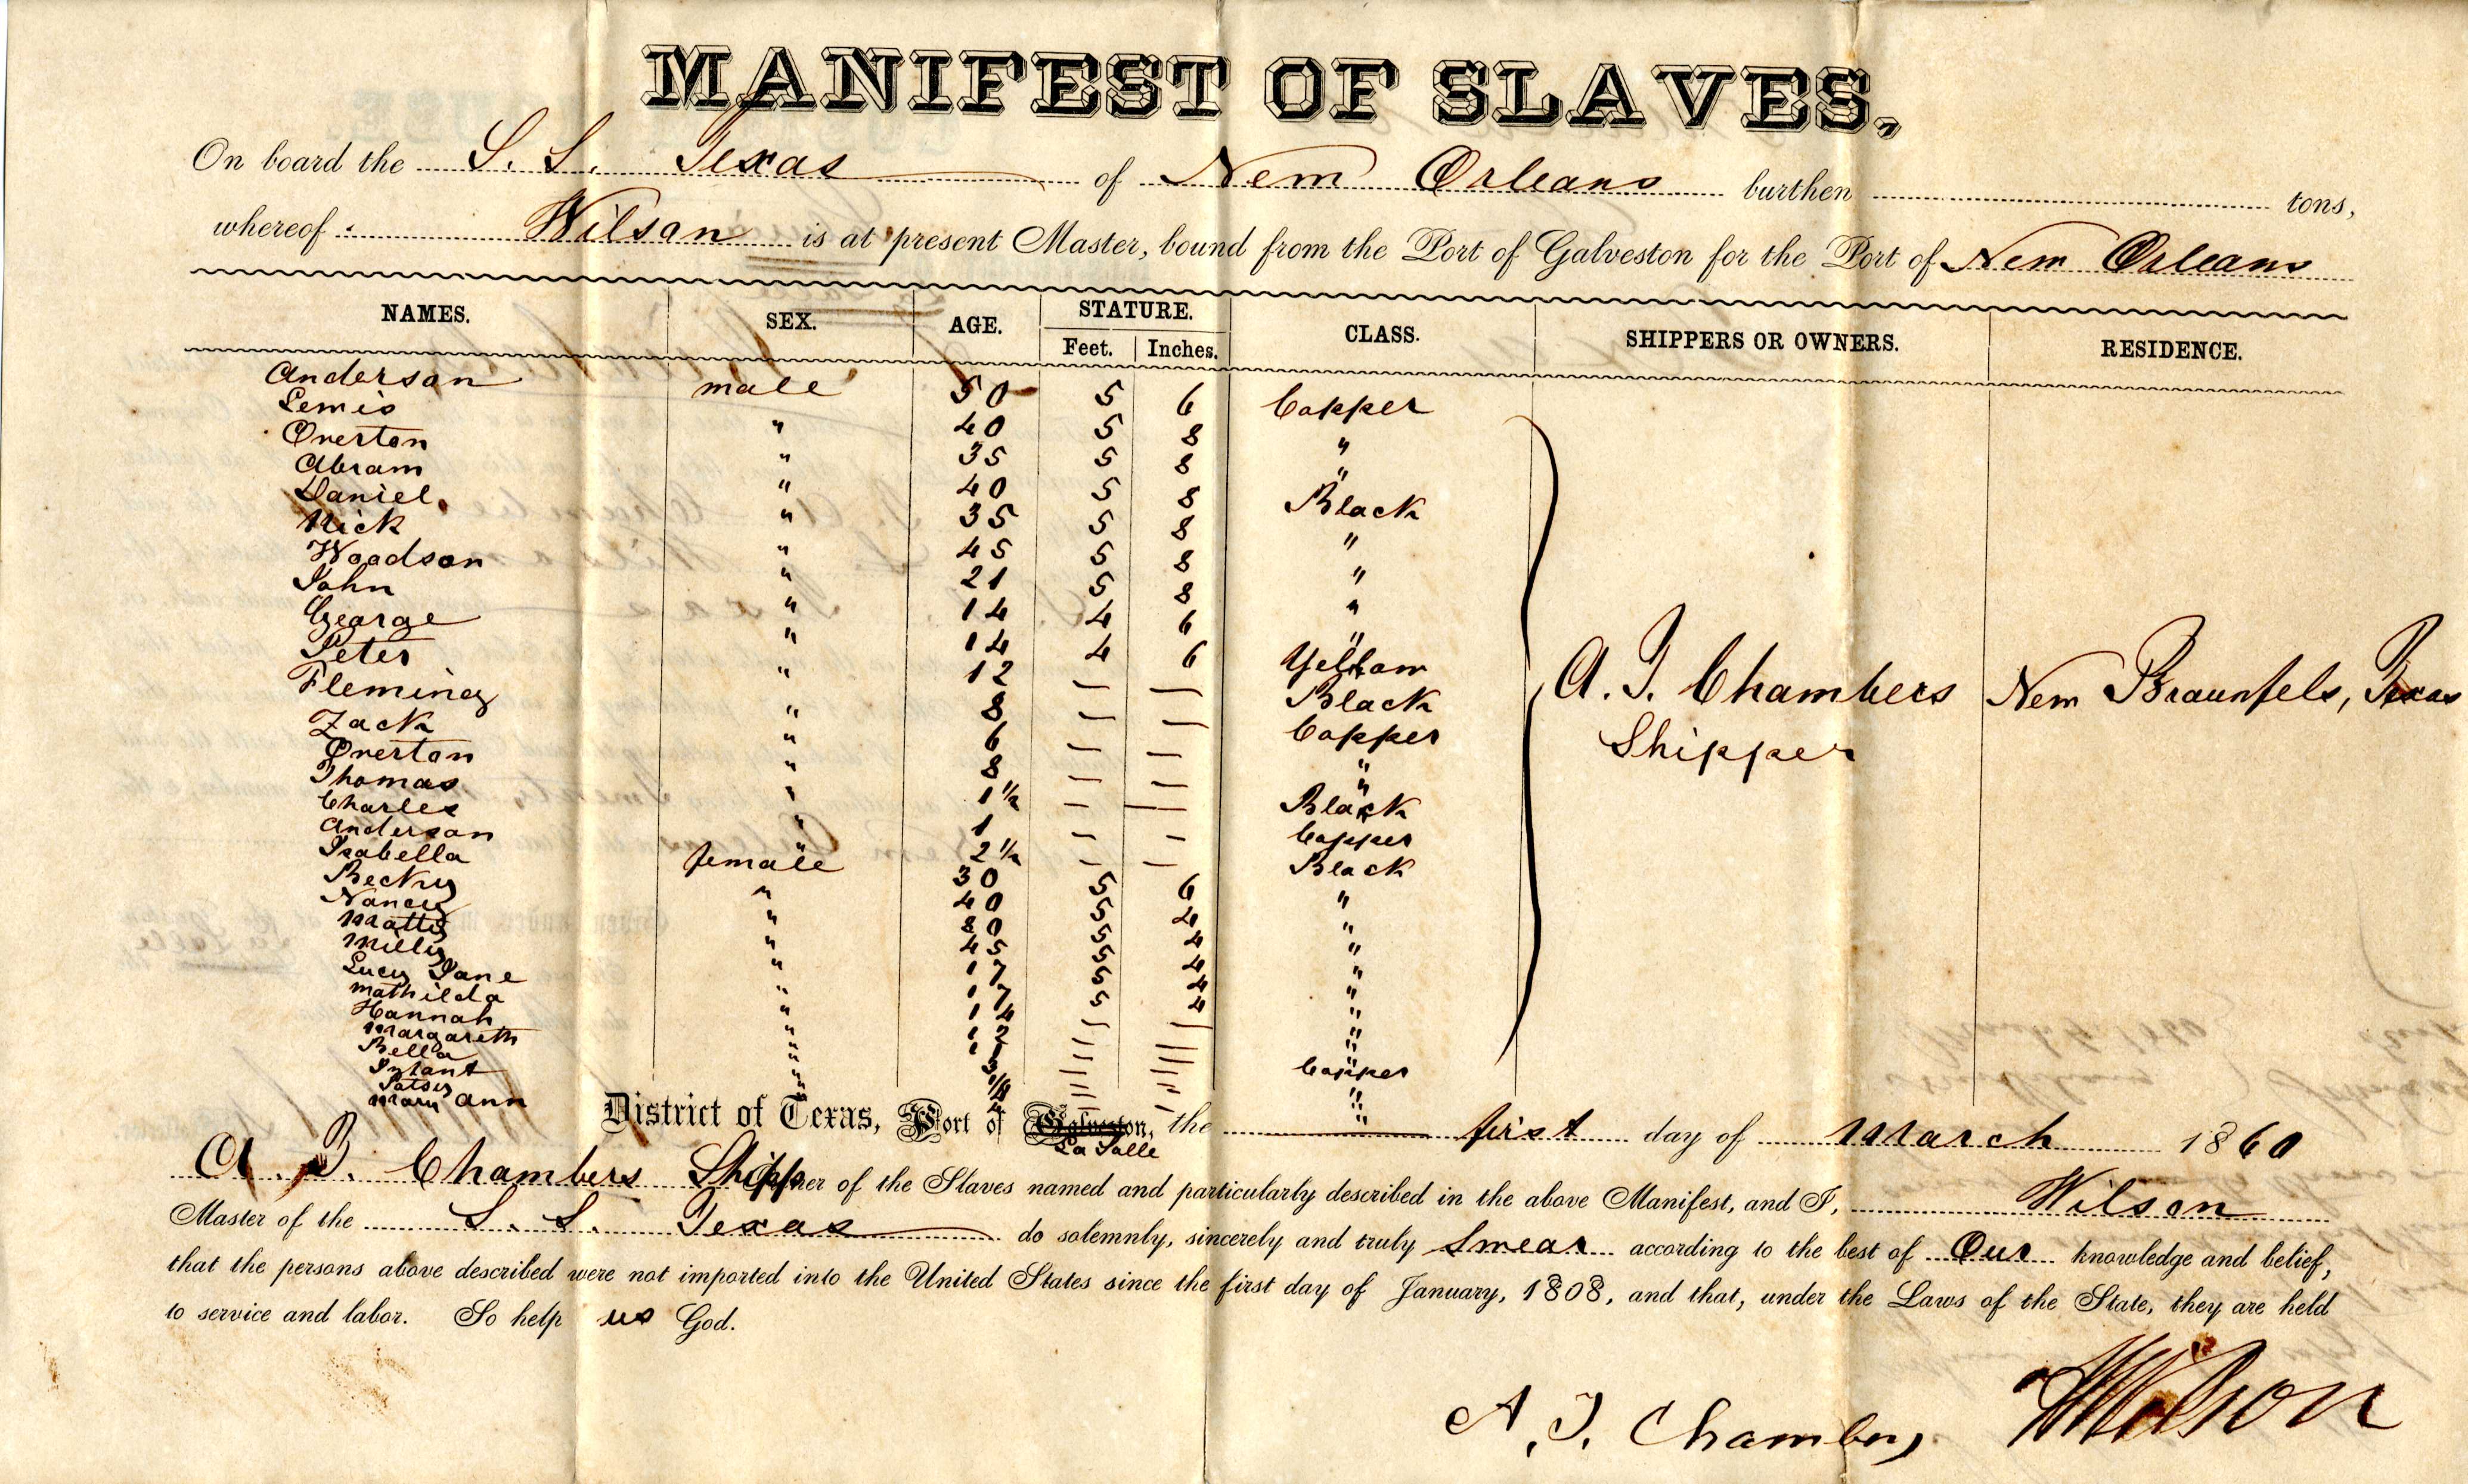 MANIFEST OF SLAVES,
On board the S. S. Texas of New Orleans burthen tons,
whereof Wilson is at present Master, bound from the Port of Galveston for the Port of New Orleans
NAMES. SEX. AGE. STATURE. CLASS. SHIPPERS OR OWNERS. RESIDENCE.
Feet. Inches.
Anderson male 50 5 6 Copper
Lewis " 40 5 8 "
Overton " 35 5 8 "
Abram " 40 5 8 Black
Daniel " 35 5 8 "
Nick " 45 5 8 "
Woodson " 21 5 8 "
John " 14 4 6 "
George " 14 4 6 Yellow
Peter " 12 — — Black
Fleming " 8 — — Copper
Zack " 6 — — "
Overton " 8 — — "
Thomas " 1½ — — Black
Charles " 1 — — Copper
Anderson " 2½ — — Black
Isabella female 30 5 6 "
Becky " 40 5 4 "
Nancy " 80 5 4 "
Matty " 45 5 4 "
Milly " 17 5 4 "
Lucy Jane " 17 5 4 "
Mathilda " 14 — — "
Hannah "
Margareth "
Bella "
Infant " Copper
Patsy "
Mary Ann "
A. T. Chambers New Braunfels, Texas
Shipper
District of Texas, Port of Galveston, the first day of March 1860
La Salle
A. B. Chambers Shipper of the Slaves named and particularly described in the above Manifest, and I, Wilson
Master of the S. S. Texas do solemnly, sincerely and truly Swear according to the best of Our knowledge and belief,
that the persons above described were not imported into the United States since the first day of January, 1808, and that, under the Laws of the State, they are held
to service and labor. So help us God.
A. T. Chambers Wilson